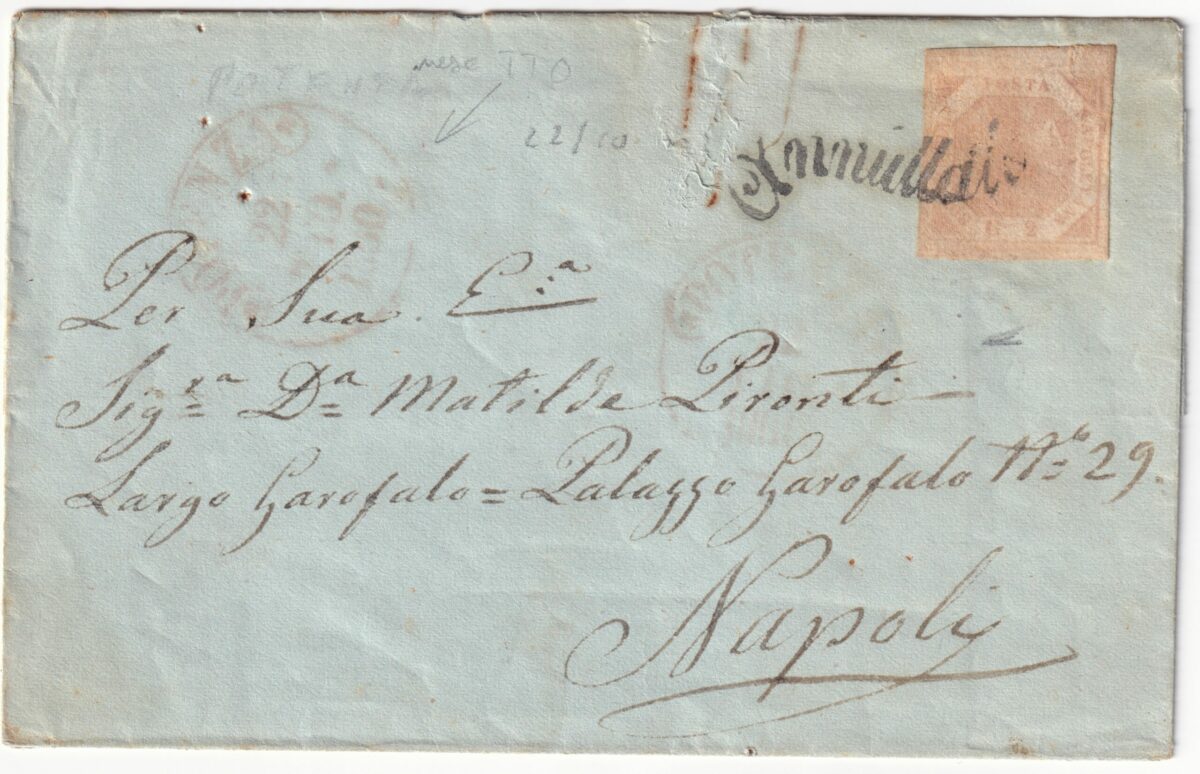 mese TTO
POTENZA
22/10
Annullato
POSTA
22
Per Sua E.ª
Sig.ra Dª Matilde Pironti
Largo Garofalo = Palazzo Garofalo Nº 29.
Napoli